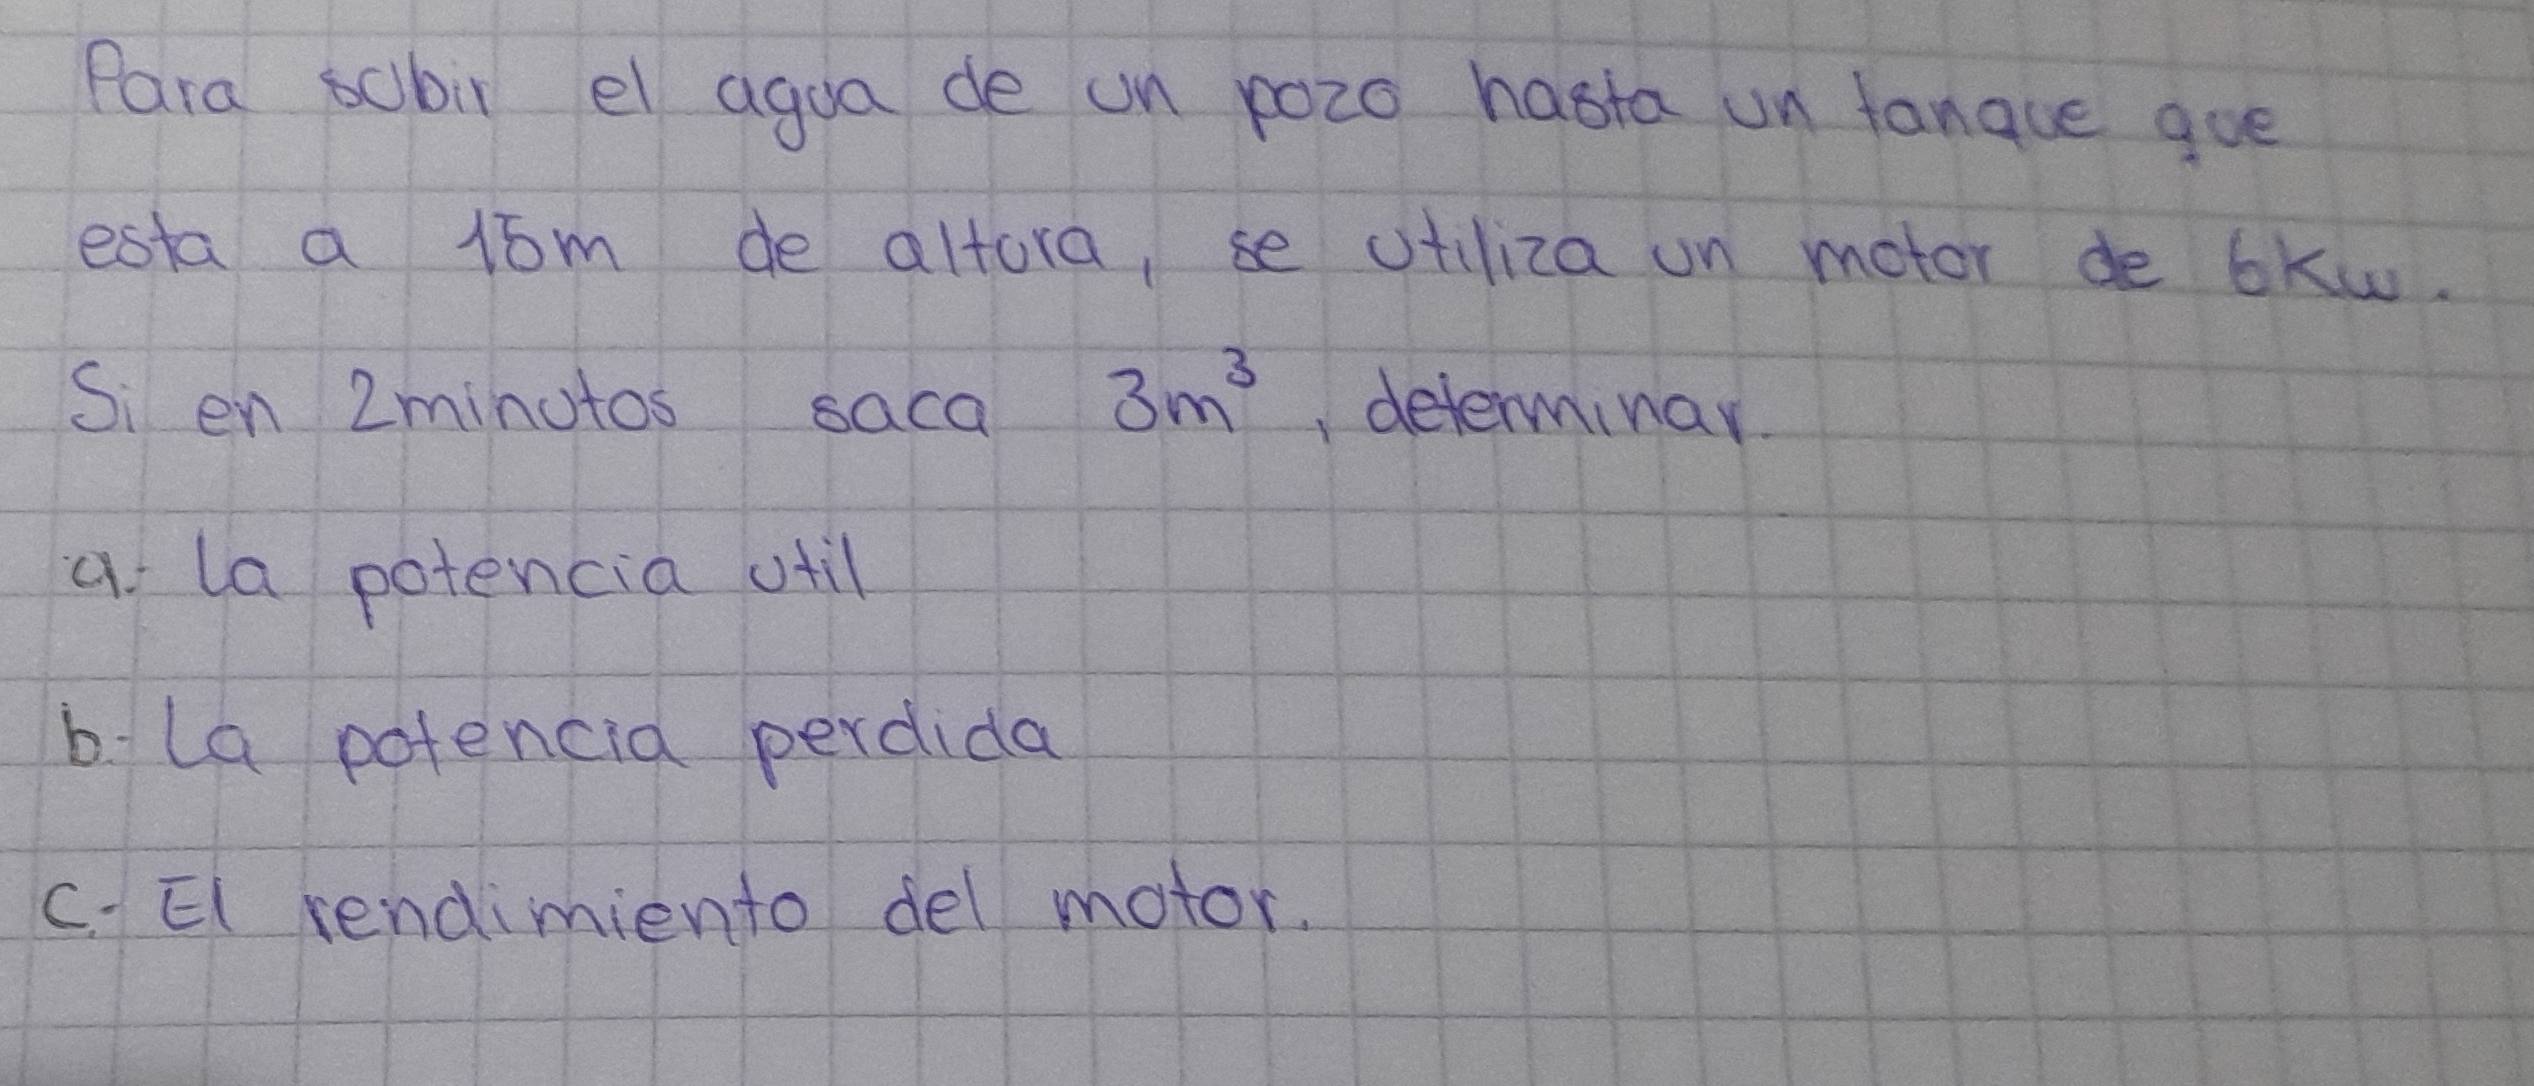 Para subir el agua de un pozo hasta un tanque que
esta a 15m de altura, se utiliza un motor de 6Kw.
Si en 2minutos saca 3m³, determinar.
a.- La potencia util
b.- La potencia perdida
c.- El rendimiento del motor.